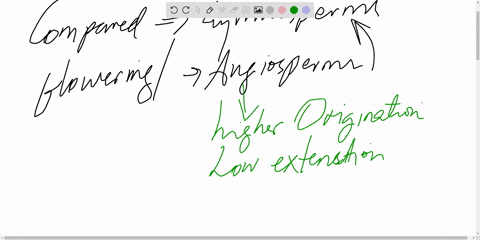 Compared => Gymnosperms
flowering/ -> Angiosperms
higher Origination
Low extenstion